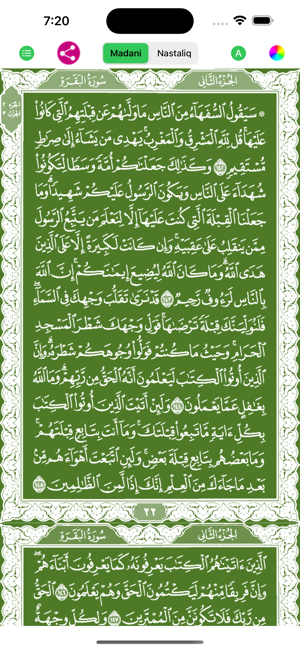 7:20
Madani Nastaliq A
سُورَةُ البَقَرَةِ الجُزءُ الثَّانِي
۞ سَيَقُولُ ٱلسُّفَهَآءُ مِنَ ٱلنَّاسِ مَا وَلَّىٰهُمْ عَن قِبْلَتِهِمُ ٱلَّتِى كَانُوا۟
عَلَيْهَا ۚ قُل لِّلَّهِ ٱلْمَشْرِقُ وَٱلْمَغْرِبُ ۚ يَهْدِى مَن يَشَآءُ إِلَىٰ صِرَٰطٍ
مُّسْتَقِيمٍ ١٤٢ وَكَذَٰلِكَ جَعَلْنَٰكُمْ أُمَّةً وَسَطًا لِّتَكُونُوا۟
شُهَدَآءَ عَلَى ٱلنَّاسِ وَيَكُونَ ٱلرَّسُولُ عَلَيْكُمْ شَهِيدًا ۗ وَمَا
جَعَلْنَا ٱلْقِبْلَةَ ٱلَّتِى كُنتَ عَلَيْهَآ إِلَّا لِنَعْلَمَ مَن يَتَّبِعُ ٱلرَّسُولَ
مِمَّن يَنقَلِبُ عَلَىٰ عَقِبَيْهِ ۚ وَإِن كَانَتْ لَكَبِيرَةً إِلَّا عَلَى ٱلَّذِينَ
هَدَى ٱللَّهُ ۗ وَمَا كَانَ ٱللَّهُ لِيُضِيعَ إِيمَٰنَكُمْ ۚ إِنَّ ٱللَّهَ
بِٱلنَّاسِ لَرَءُوفٌ رَّحِيمٌ ١٤٣ قَدْ نَرَىٰ تَقَلُّبَ وَجْهِكَ فِى ٱلسَّمَآءِ ۖ
فَلَنُوَلِّيَنَّكَ قِبْلَةً تَرْضَىٰهَا ۚ فَوَلِّ وَجْهَكَ شَطْرَ ٱلْمَسْجِدِ
ٱلْحَرَامِ ۚ وَحَيْثُ مَا كُنتُمْ فَوَلُّوا۟ وُجُوهَكُمْ شَطْرَهُۥ ۗ وَإِنَّ
ٱلَّذِينَ أُوتُوا۟ ٱلْكِتَٰبَ لَيَعْلَمُونَ أَنَّهُ ٱلْحَقُّ مِن رَّبِّهِمْ ۗ وَمَا ٱللَّهُ
بِغَٰفِلٍ عَمَّا يَعْمَلُونَ ١٤٤ وَلَئِنْ أَتَيْتَ ٱلَّذِينَ أُوتُوا۟ ٱلْكِتَٰبَ
بِكُلِّ ءَايَةٍ مَّا تَبِعُوا۟ قِبْلَتَكَ ۚ وَمَآ أَنتَ بِتَابِعٍ قِبْلَتَهُمْ ۚ
وَمَا بَعْضُهُم بِتَابِعٍ قِبْلَةَ بَعْضٍ ۚ وَلَئِنِ ٱتَّبَعْتَ أَهْوَآءَهُم مِّنۢ
بَعْدِ مَا جَآءَكَ مِنَ ٱلْعِلْمِ ۙ إِنَّكَ إِذًا لَّمِنَ ٱلظَّٰلِمِينَ ١٤٥
٢٢
سُورَةُ البَقَرَةِ الجُزءُ الثَّانِي
ٱلَّذِينَ ءَاتَيْنَٰهُمُ ٱلْكِتَٰبَ يَعْرِفُونَهُۥ كَمَا يَعْرِفُونَ أَبْنَآءَهُمْ ۖ
وَإِنَّ فَرِيقًا مِّنْهُمْ لَيَكْتُمُونَ ٱلْحَقَّ وَهُمْ يَعْلَمُونَ ١٤٦ ٱلْحَقُّ
مِن رَّبِّكَ ۖ فَلَا تَكُونَنَّ مِنَ ٱلْمُمْتَرِينَ ١٤٧ وَلِكُلٍّ وِجْهَةٌ